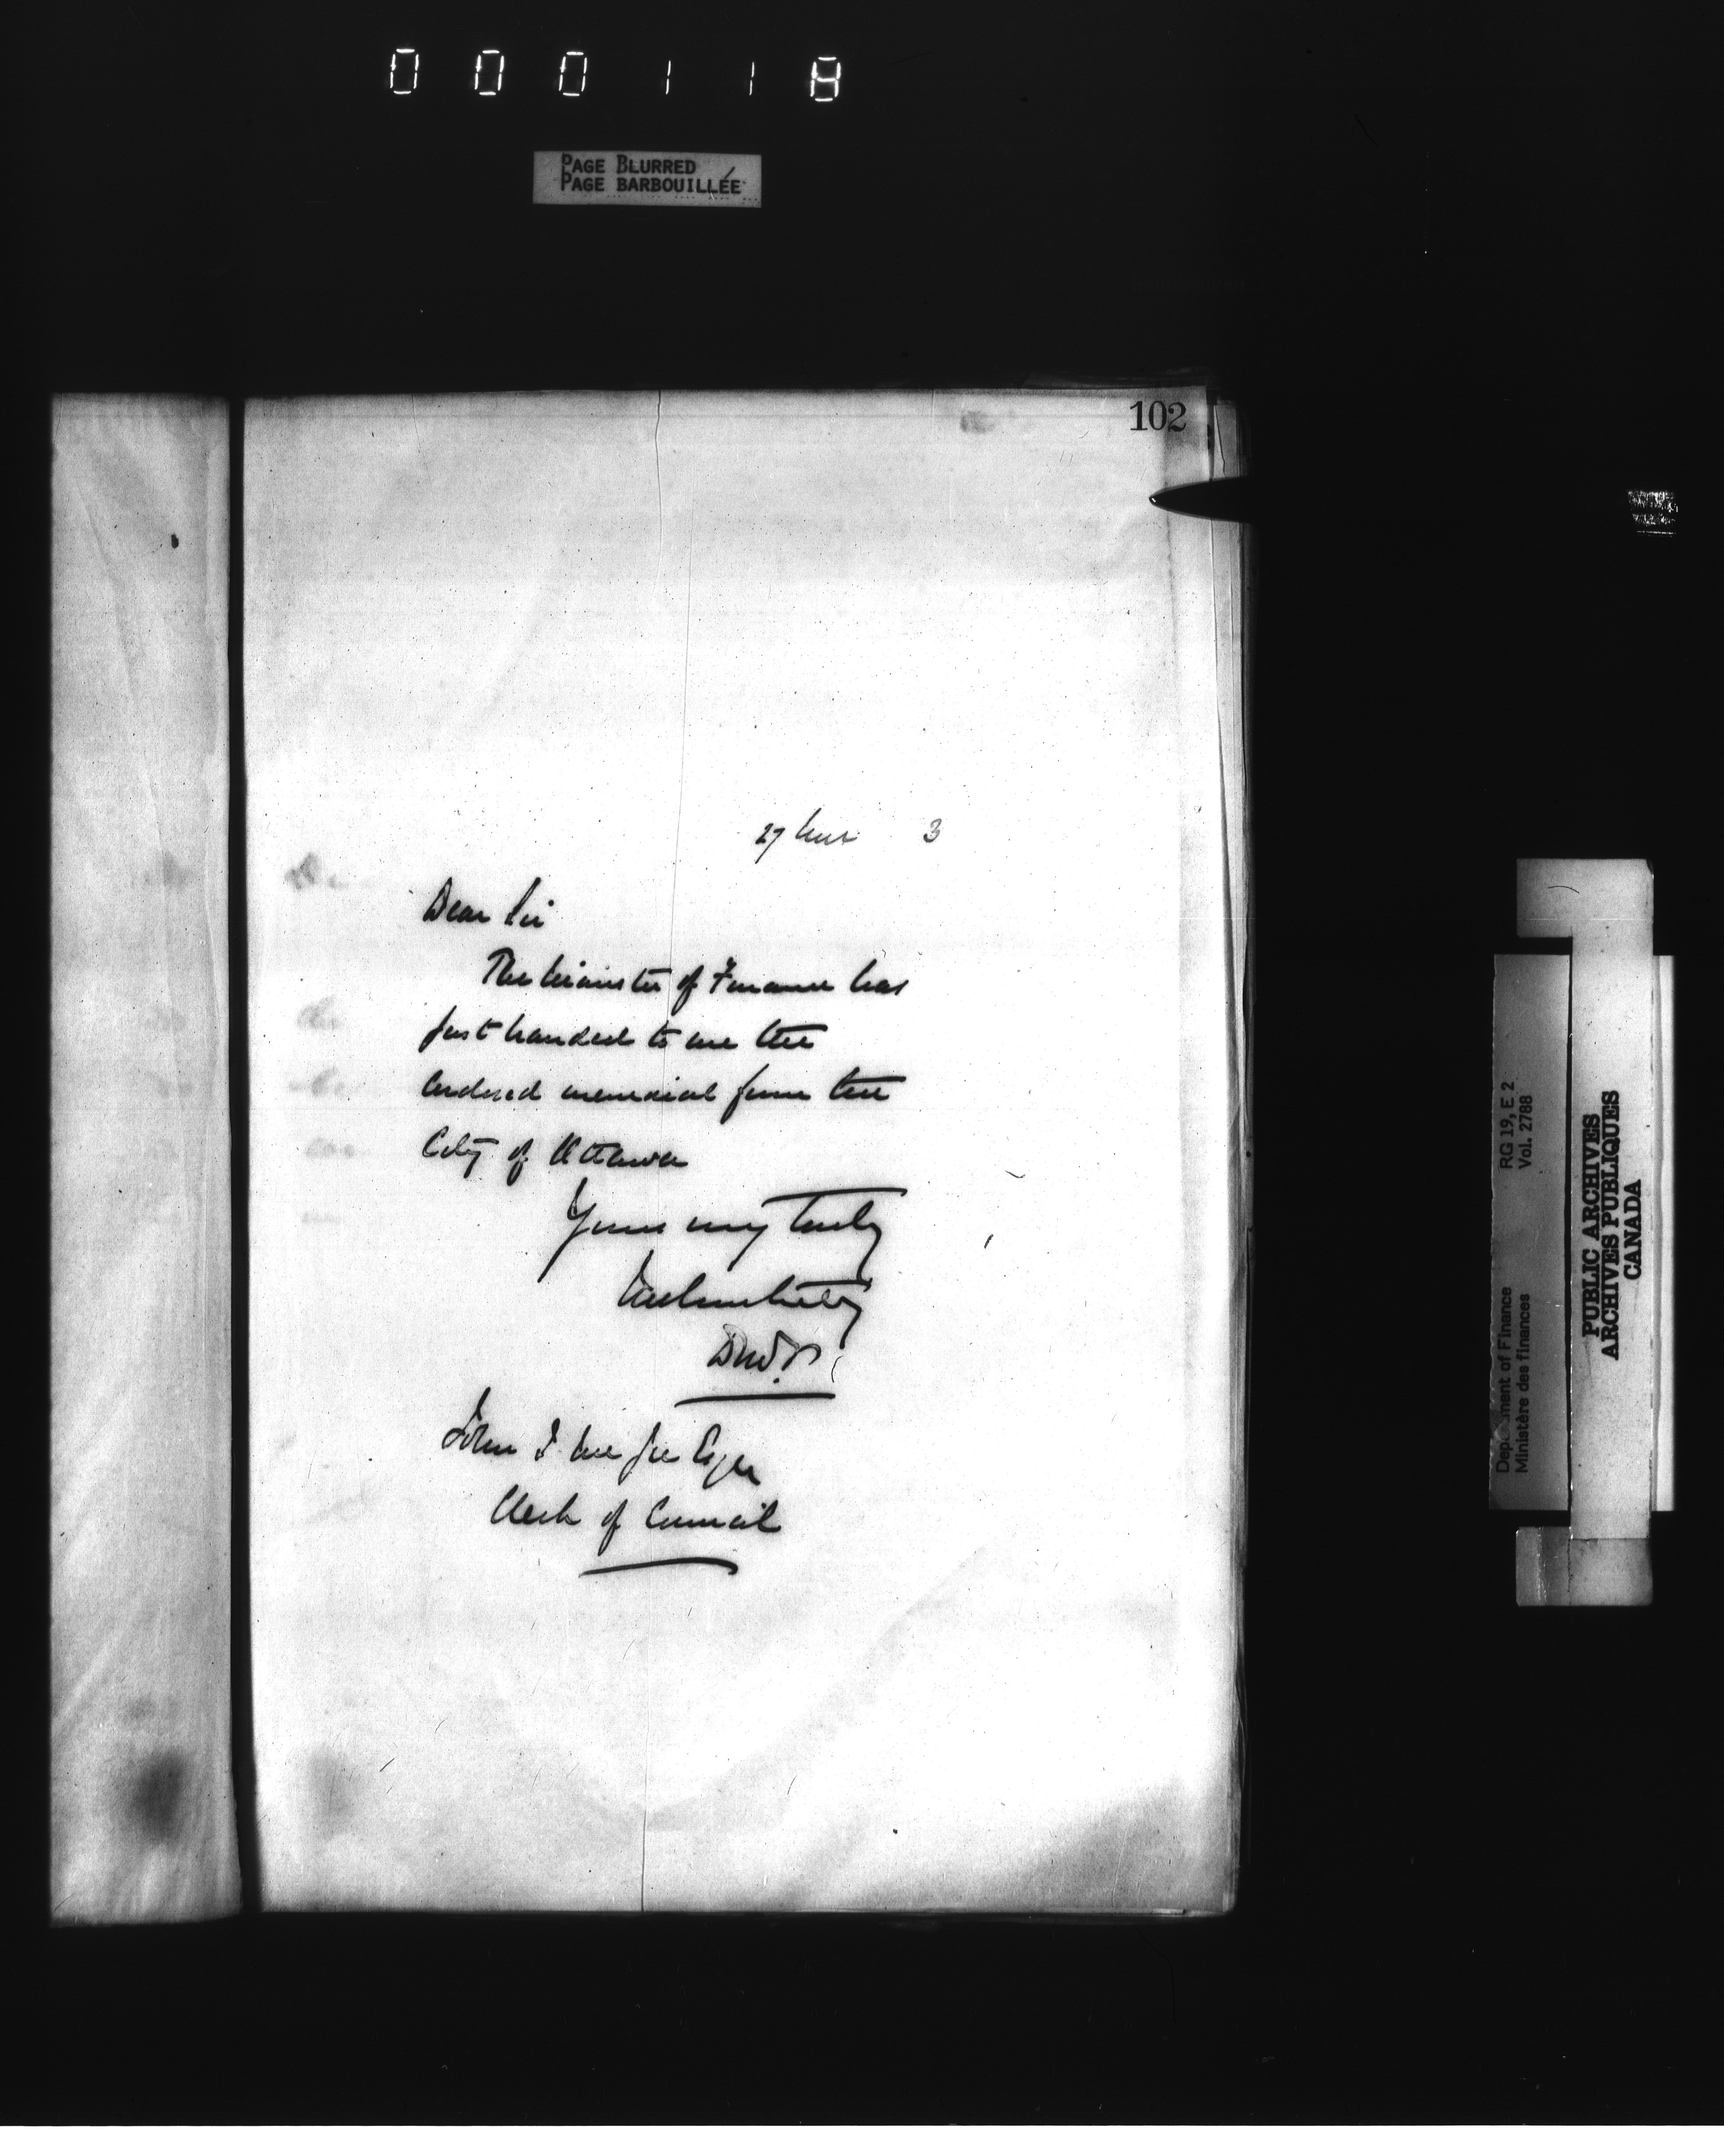 000118
PAGE BLURRED
PAGE BARBOUILLÉE
102
27 Mar 3
Dear Sir
The Minister of Finance has
just handed to me the
enclosed memorial from the
City of Ottawa
Yours very truly
DMF
John J McGee Esqre
Clerk of Council
RG 19, E 2
Vol. 2788
Department of Finance
Ministère des finances
PUBLIC ARCHIVES
ARCHIVES PUBLIQUES
CANADA